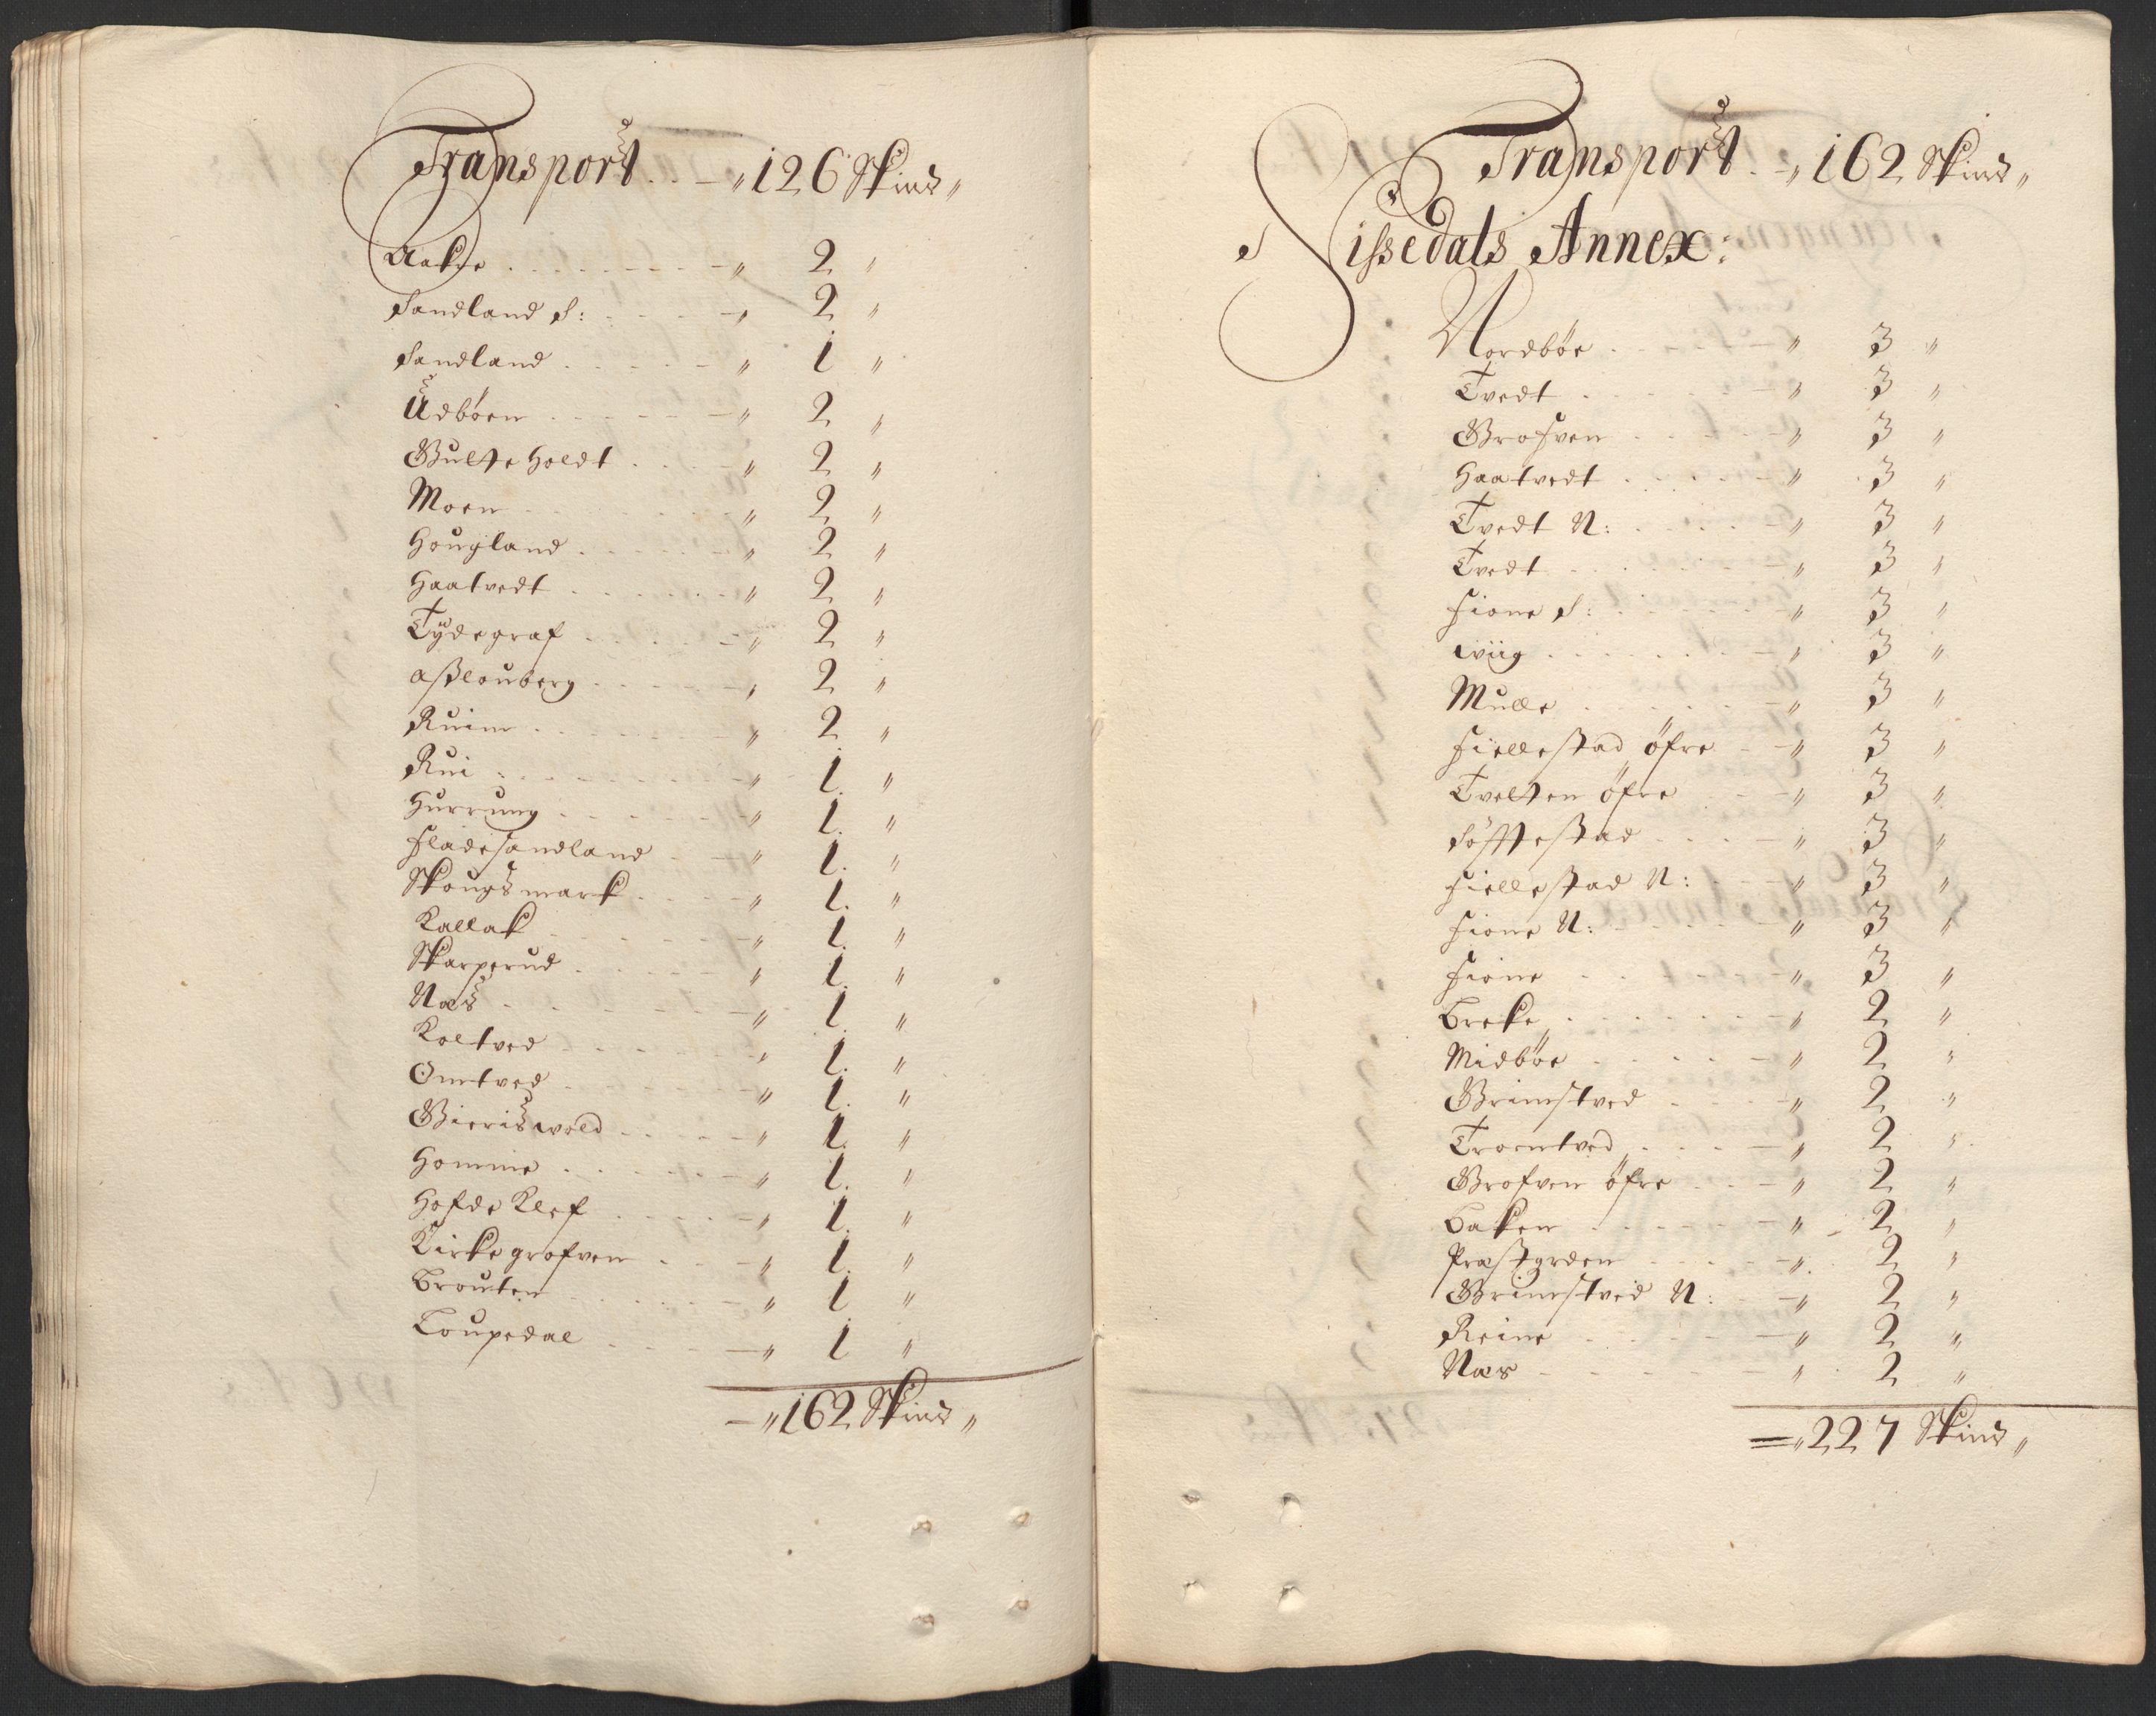 Transport . . – „ 126 Skind „
Aakre . . . . . . . . – „ 2 „
Sandland S: . . . . – „ 2 „
Sandland . . . . . – „ 1 „
Udbøen . . . . . . – „ 2 „
Gulteholdt . . . . „ 2 „
Moen . . . . . . . „ 2 „
Hougland . . . . . – „ 2 „
Haatvedt . . . . . . „ 2 „
Tÿdegraf . . . . . – „ 2 „
Aßlouberg . . . . . – „ 2 „
Ruim . . . . . . . „ 2 „
Rui . . . . . . . . – „ 1. „
Hurrung . . . . . . – „ 1. „
Fladesandland . – „ 1. „
Skougsmark . . . . „ 1. „
Kallak . . . . . . – „ 1. „
Skarperud . . . . . „ 1. „
Næs . . . . . . . – „ 1. „
Koltved . . . . . – „ 1. „
Omtved . . . . . . – „ 1. „
Gieriswold . . . . – „ 1. „
Homme . . . . . . – „ 1. „
Hofde Klef . . . . – „ 1. „
Kirkegrofven . . . „ 1. „
Brouten . . . . . – „ 1 „
Loupedal . . . . . – „ 1 „
– „ 162 Skind „
Transport . – „ 162 Skind „
Nissedals Annex:
Nordbøe . . . . – „ 3 „
Tvedt . . . . . – „ 3 „
Grofven . . . . – „ 3 „
Haatvedt . . . . . – „ 3 „
Tvedt N: . . . . – „ 3 „
Tvedt . . . . . . – „ 3 „
Fione S: . . . . . – „ 3 „
Wiig . . . . . . . – „ 3 „
Mulle . . . . . . – „ 3 „
Fiellestad øfre – – „ 3 „
Tvelten øfre – – „ 3 „
Søftestad . . . . – „ 3 „
Fiellestad N: . . – „ 3 „
Fione N: . . . . . – „ 3 „
Fione . . . . – „ 3 „
Breke . . . . . . – „ 2 „
Midbøe . . . . – „ 2 „
Grimstved . . . . – „ 2 „
Troemtved . . . . – „ 2 „
Grofven øfre . . . – „ 2 „
Baken . . . . . . – „ 2 „
Præstgrden . . . . . – „ 2 „
Grimstved N: . – „ 2 „
Reine . . . . . – „ 2 „
Næs . . . . . – „ 2 „
= „ 227 Skind „